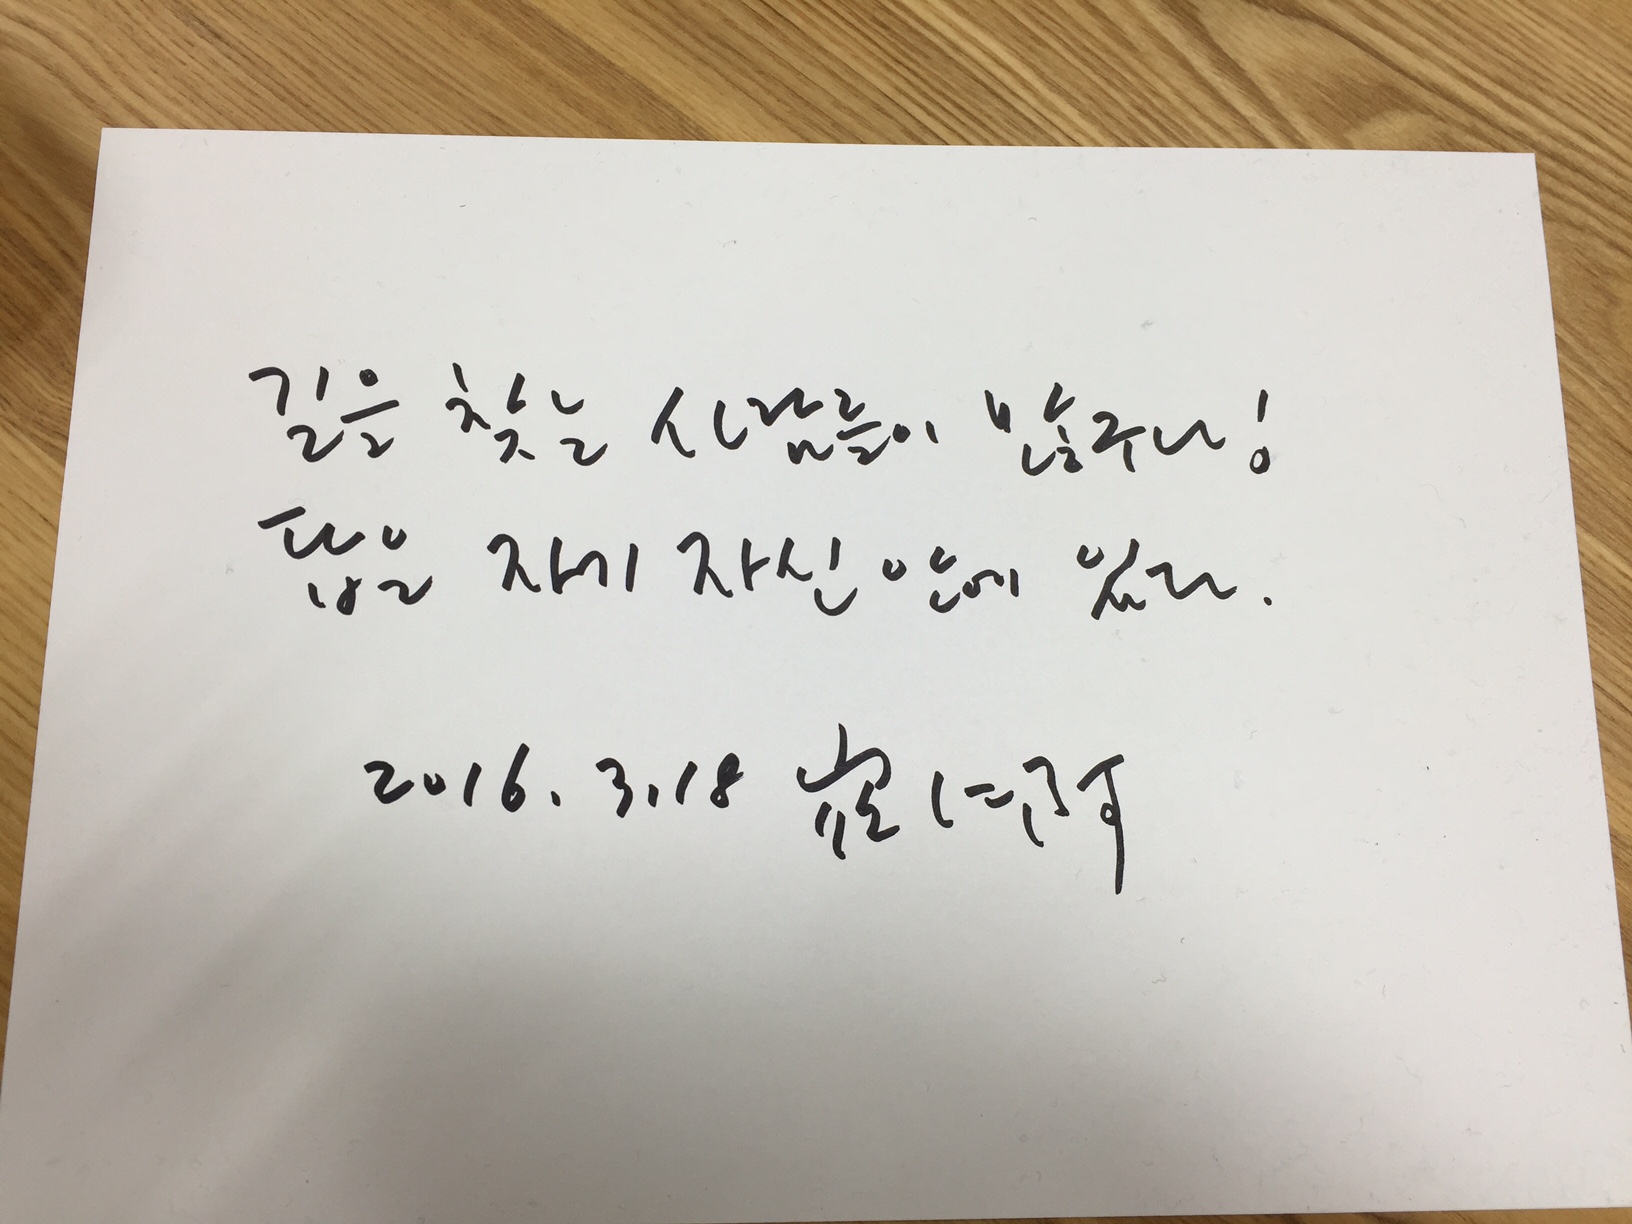 길을 찾는 사람들이
답은 자기 자신 안에 있다.
2016. 3.18